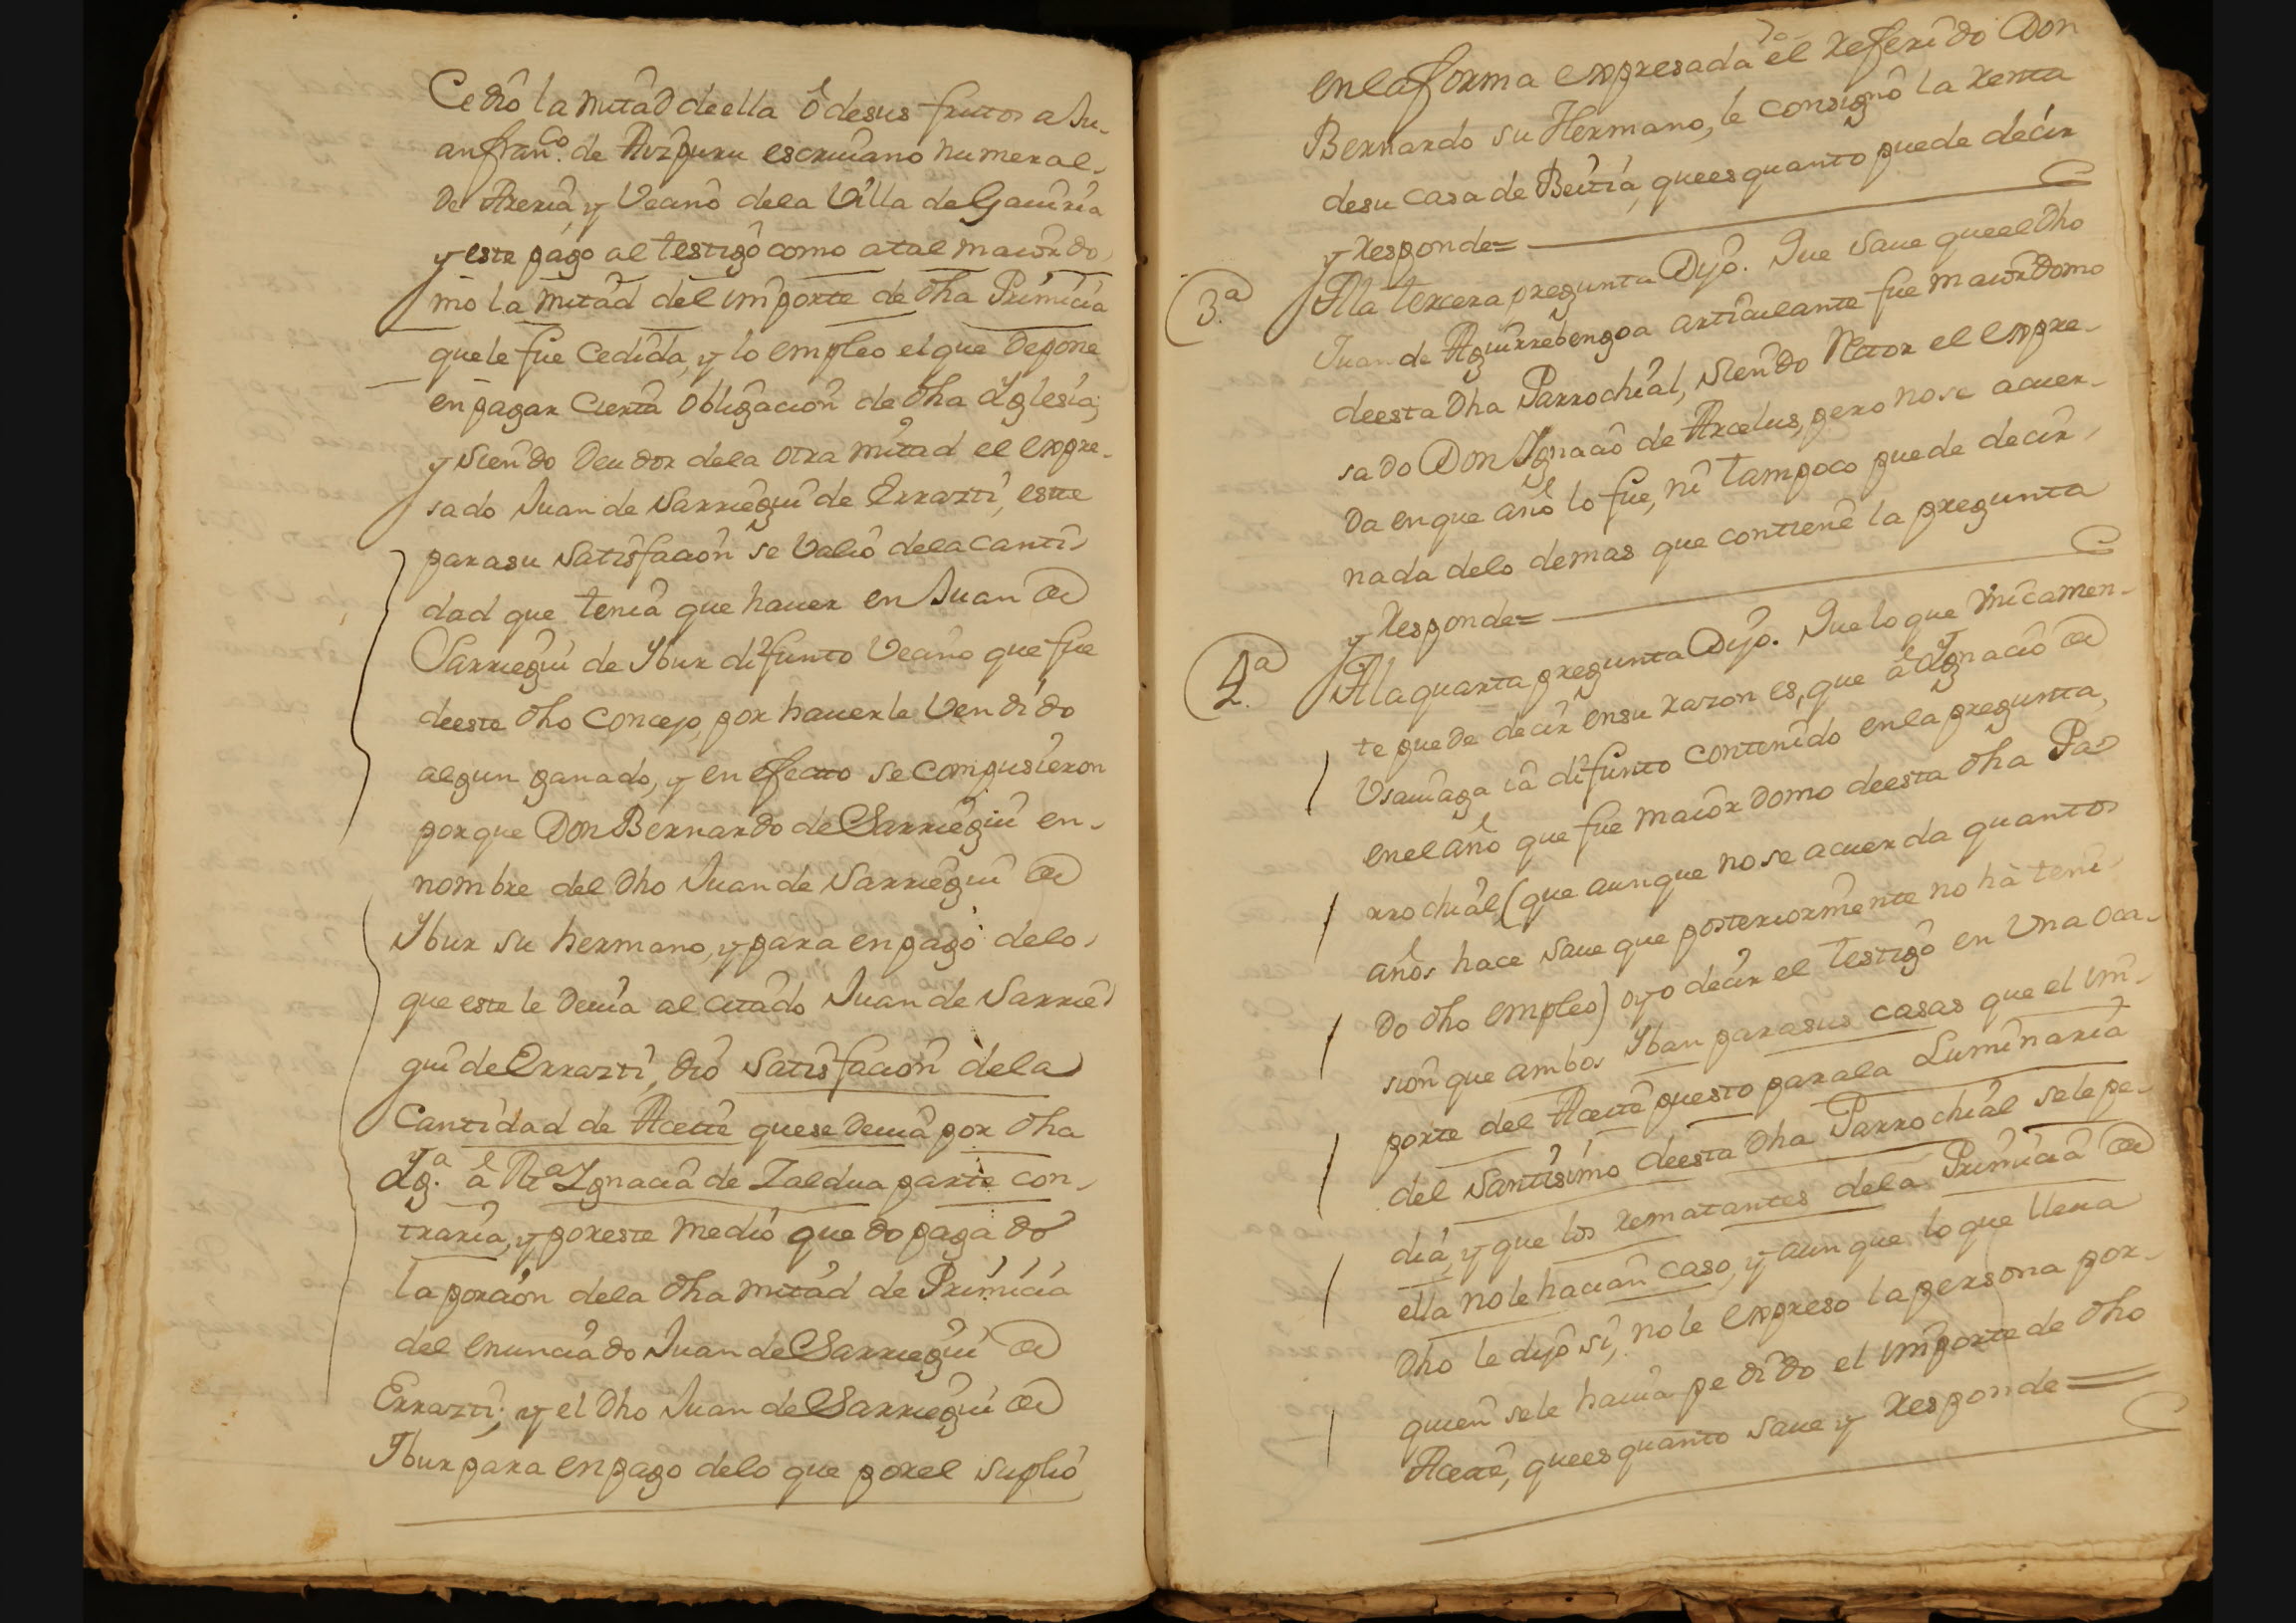 Cedió la mitad de ella ó de sus frutos a Ju-
an Fran.co de Aizpuru escriuano numeral
deAreria, y Vecino de la Villa de Gauiria
y este pagó al testigo como a tal maiordo
mo la mitad del importe de dha Primicia
que le fue cedida, y lo empleo el que depone
en pagar cierta obligacion de dha Yglesia;
y siendo deudor de la otra mitad el expre-
sado Juan de Sarriegui de Errazti, este
para su satisfacion se valió de la canti-
dad que tenia que hauer en Juan de
Sarriegui de Ybur difunto Vecino que fue
de este dho Concejo, por hauerle vendido
algun ganado, y en efecto se compusieron
porque Don Bernardo de Sarriegui en-
nombre del dho Juan de Sarriegui de
Ybur su hermano, y para en pago de lo
que este le deuia al citado Juan de Sarrie-
gui de Errazti, dió satisfacion de la
Cantidad de Aceite que se deuia por dha
Yg.a á M.a Ygnacia de Zaldua parte con-
traria, y por este medio quedo pagado
la porcion de la dha mitad de Primicia
del enunciado Juan de Sarriegui de
Errazti; y el dho Juan de Sarriegui de
Ybur para en pago de lo que por el suplió
en la forma expresada el referido Don
Bernardo su Hermano, le consignó la renta
de su casa de Beitia, que es quanto puede decir
y responde=
3.a
A la tercera pregunta Dijo. Que saue que el dho
Juan de Aguirrebengoa articulante fue maiordomo
de esta dha Parrochial, siendo Rector el expre-
sado Don Ygnacio de Arcelus, pero no se acuer-
da en que año lo fue, ni tampoco puede decir
nada de lo demas que contiene la pregunta
y responde=
4.a
A la quarta pregunta Dijo. Que lo que unicamen-
te puede decir en su razon es, que á Ygnacio de
Usauiaga iá difunto contenido en la pregunta,
en el año que fue maiordomo de esta dha Pa
rrochial (que aunque no se acuerda quantos
años hace saue que posteriormente no há teni
do dho empleo) oyo decir el testigo en una oca-
sion que ambos Yban para sus casas que el im-
porte del Aceite puesto para la Luminaria
del Santisimo de esta dha Parrochial se le pe-
dia, y que los rematantes de la Primicia de
ella no le hacian caso, y aunque lo que lleua
dho le dijo si, no le expreso la persona por-
quien se le hauia pedido el importe de dho
Aceite, que es quanto saue y responde=